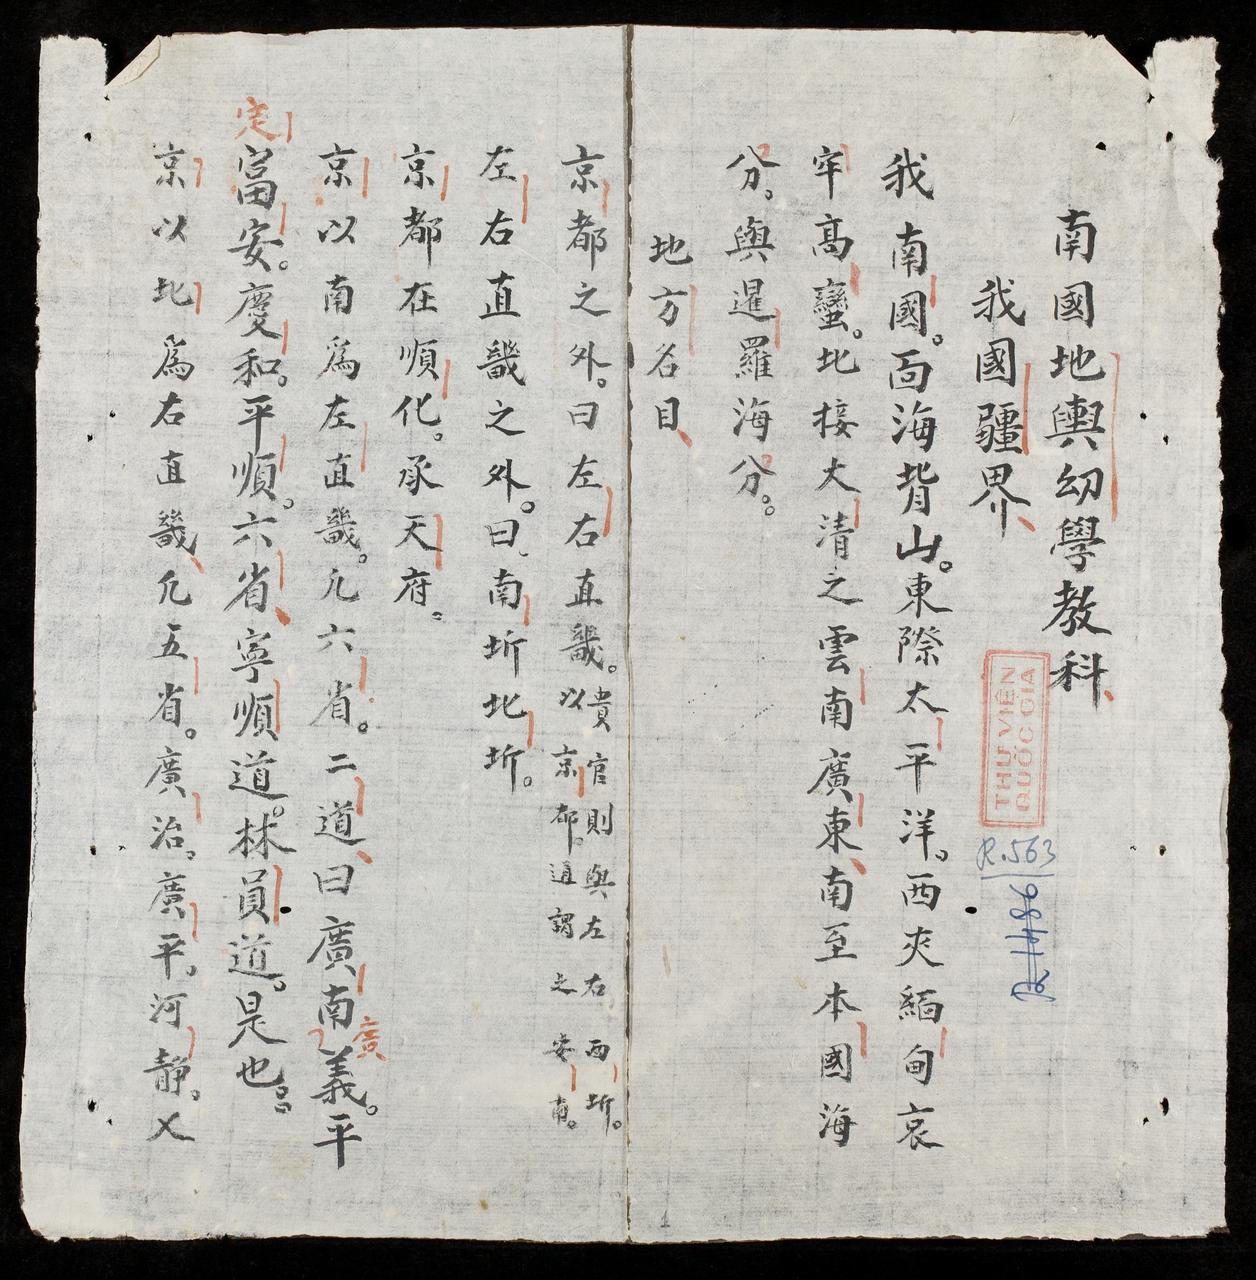 南國地輿幼學教科、
我國疆界、
我南國。面海背山。東際太平洋。西夾緬甸哀
牢高蠻。北接大清之雲南廣東、南至本國海
分。與暹羅海分。
地方名目、
京都之外。曰左右直畿。貴官則與左右西圻。
以京都。通謂之安南。
左右直畿之外。曰、南圻北圻。
京都在順化。承天府。
京以南爲左直畿。凡六省。二道、曰廣南廣義。平
定富安。慶和。平順。六省、寧順道。林員道。是也。
京以北爲右直畿、凡五省。廣治。廣平。河靜。乂
THƯ VIỆN
QUỐC GIA
R.563